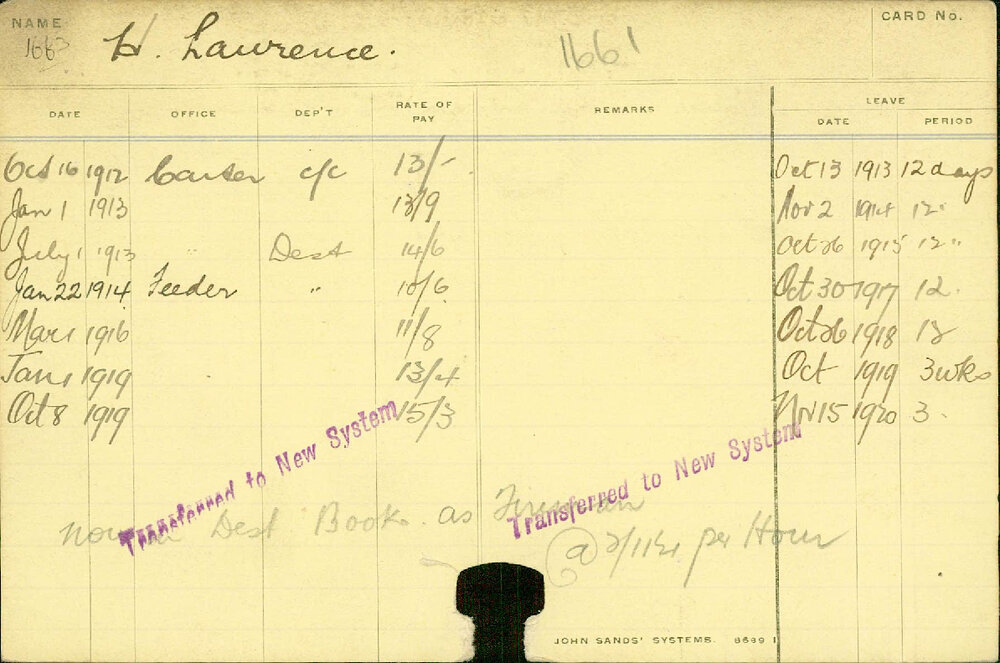 NAME CARD No.
1663 H. Lawrence. 1661
DATE OFFICE DEP'T RATE OF PAY REMARKS LEAVE
DATE PERIOD
Oct 16 1912 Carter c/c 13/- Oct 13 1913 12 days
Jan 1 1913 13/9 Nov 2 1914 12 "
July 1 1913 " Dest 14/6 Oct 26 1915 12 "
Jan 22 1914 Feeder " 10/6 Oct 30 1917 12.
Mar 1 1916 11/8 Oct 26 1918 12
Jan 1 1919 13/4 Oct 1919 3 wks
Oct 8 1919 15/3 Nv 15 1920 3.
Transferred to New System Transferred to New System
now in Dest Book as Fireman
@ per Hour
JOHN SANDS' SYSTEMS. 8689